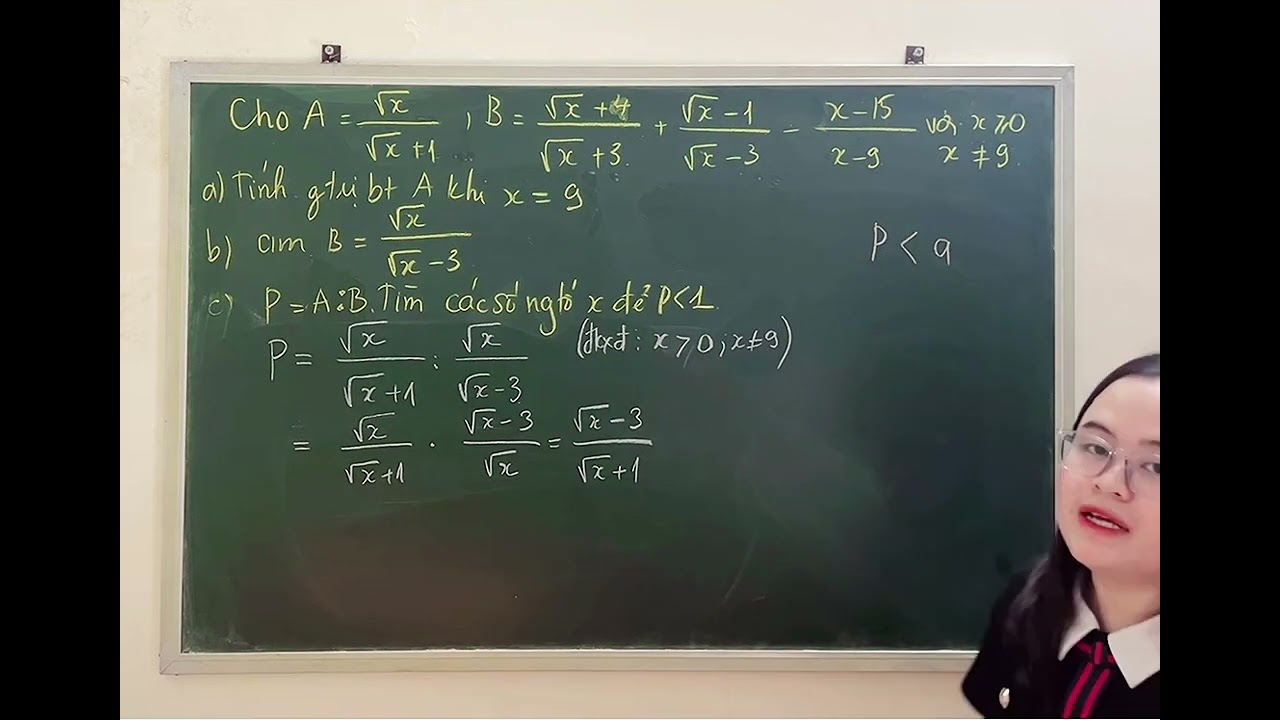 Cho A = √x / (√x + 1) , B = (√x + 4) / (√x + 3) + (√x - 1) / (√x - 3) - (x - 15) / (x - 9) với x ⩾ 0 x ≠ 9
a) Tính gtrị bt A khi x = 9
b) cm B = √x / (√x - 3)
P < a
c) P = A : B. Tìm các số ngtố x để P < 1
P = √x / (√x + 1) : √x / (√x - 3) (đkxđ : x > 0 ; x ≠ 9)
= √x / (√x + 1) . (√x - 3) / √x = (√x - 3) / (√x + 1)